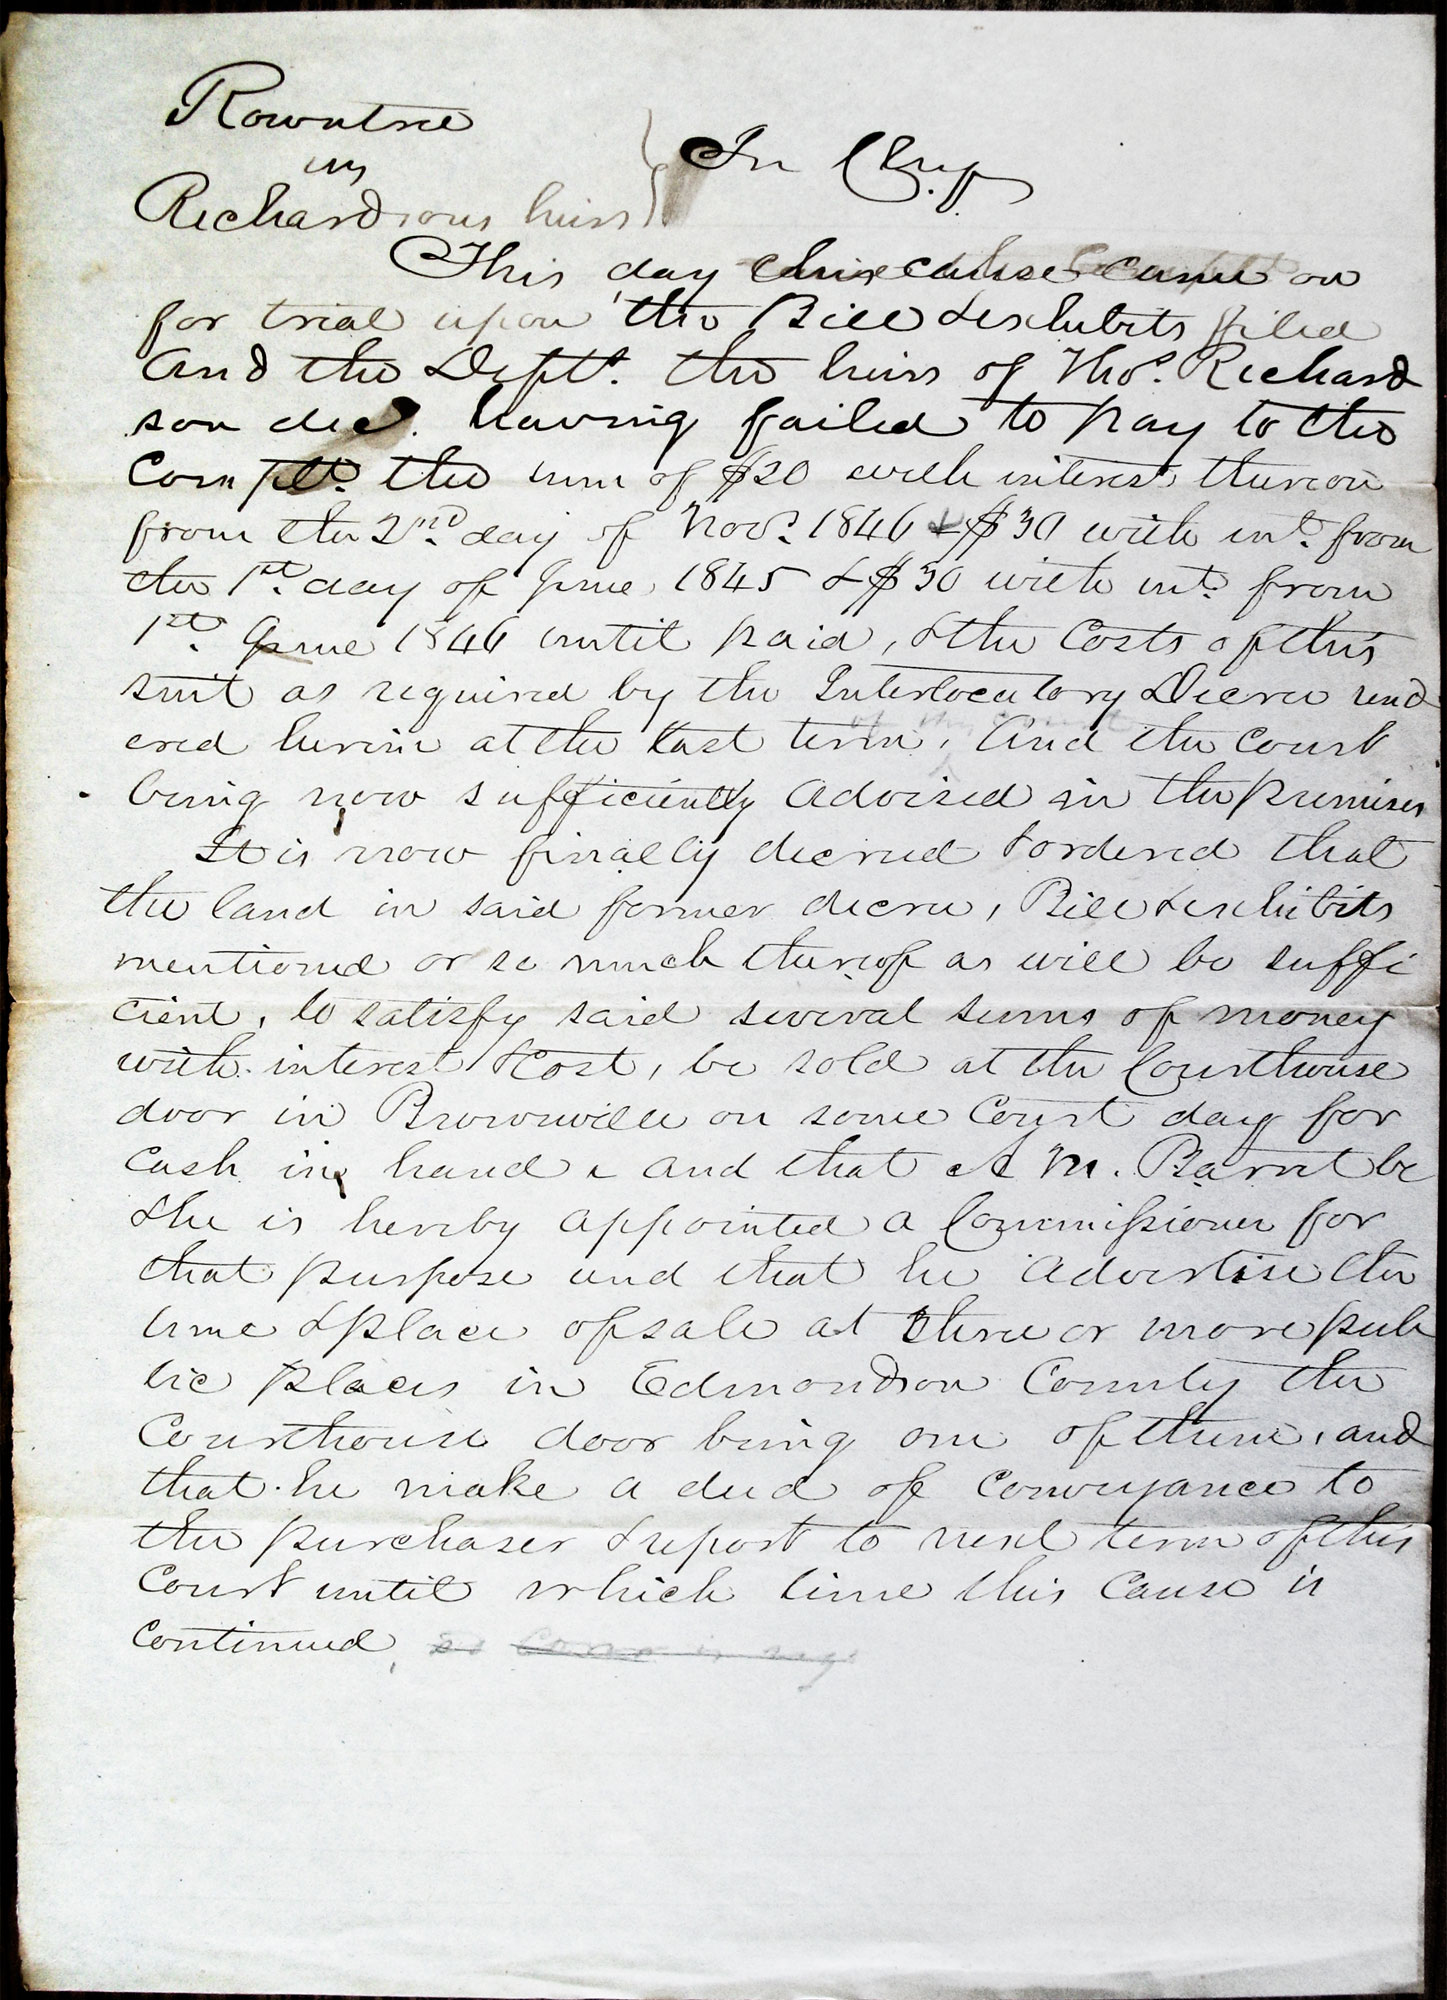 Rowntree
vs
Richardsons heirs } In Chy.
This day this cause came on
for trial upon the Bill & exhibits filed
And the Defts. the heirs of Thos. Richard
son decd. having failed to pay to the
Complt. the sum of $20 with interest thereon
from the 2nd. day of Novr. 1846 & $30 with int. from
the 1st. day of June 1845 & $30 with int. from
1st. June 1846 until paid, & the Costs of this
suit as required by the Interlocutory Decree rend
ered herein at the last term, And the Court
being now sufficiently advised in the premises
It is now finally decreed & ordered that
the land in said former decree, Bill & exhibits
mentioned or so much thereof as will be suffi
cient, to satisfy said several sums of money
with interest & Cost, be sold at the Courthouse
door in Brownsville on some Court day for
Cash in hand & and that A M. Barret be
& he is hereby appointed a Commissioner for
that purpose and that he advertise the
time & place of sale at three or more pub
lic places in Edmondson County the
Courthouse door being one of them, and
that he make a deed of Conveyance to
the purchaser & report to next term of this
Court until which time this Cause is
Continued,